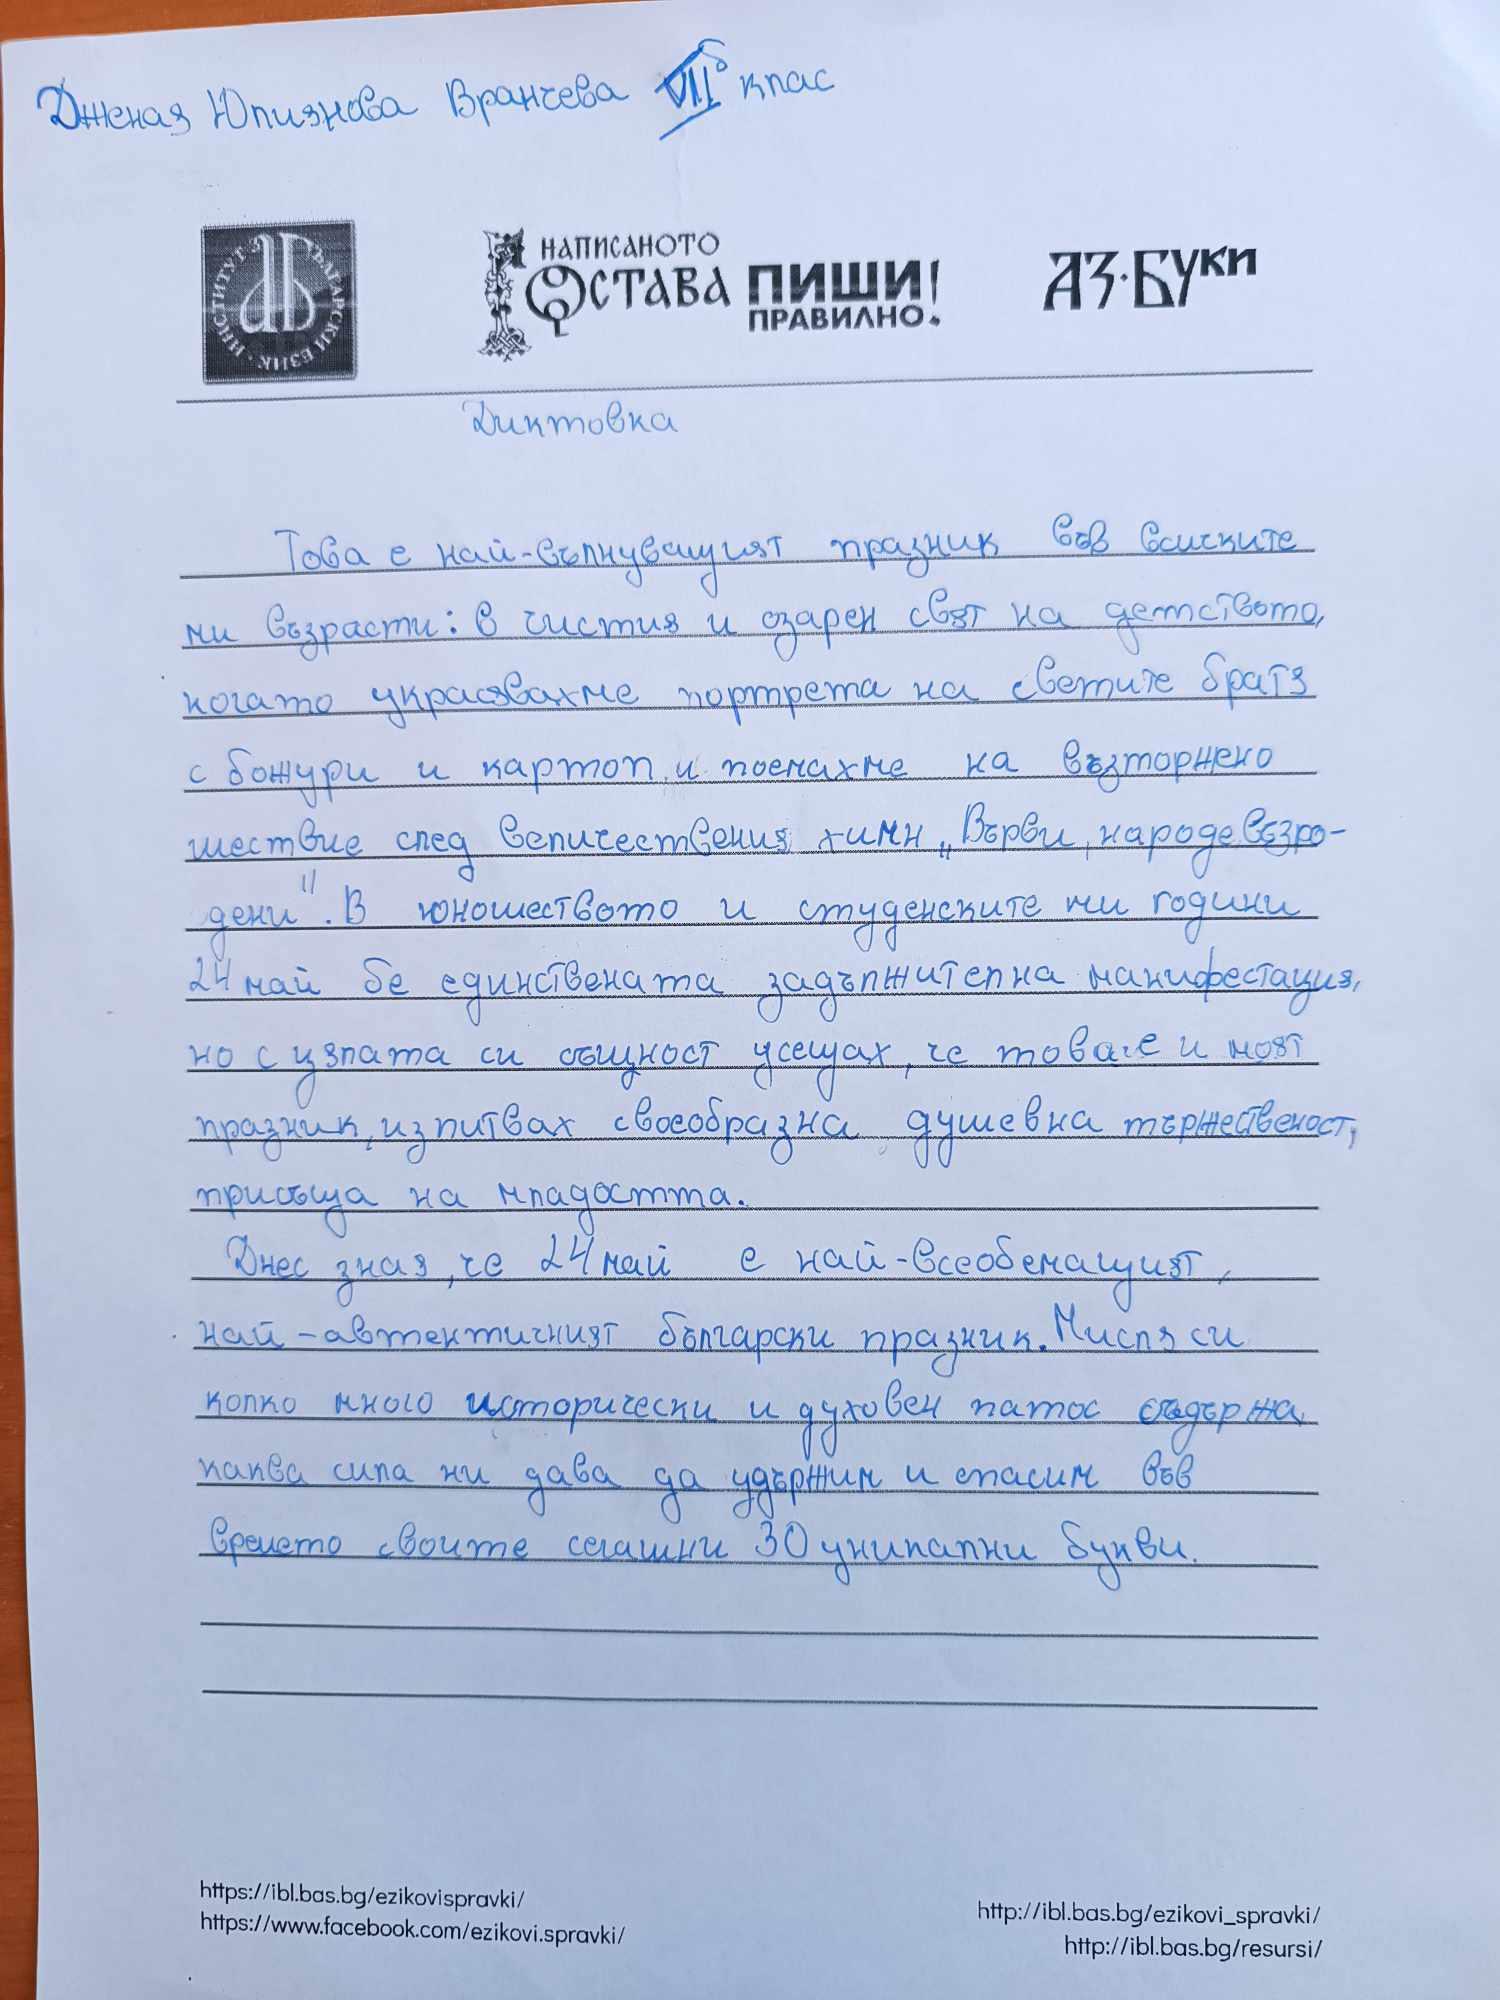 Дженая Юлиянова Вранчева VIIб клас
ИНСТИТУТ ЗА БЪЛГАРСКИ ЕЗИК
НАПИСАНОТО ОСТАВА ПИШИ ПРАВИЛНО!
АЗ·БУКИ
Диктовка
Това е най-вълнуващият празник във всичките
ми възрасти: в чистия и озарен свят на детството,
когато украсявахме портрета на светите братя
с божури и картоп, и поемахме на възторжено
шествие след величествения химн „Върви, народе възро-
дени". В юношеството и студенските ми години
24 май бе единствената задължителна манифестация,
но с цялата си същност усещах, че това е и моят
празник, изпитвах своеобразна душевна тържественост,
присъща на младостта.
Днес зная, че 24 май е най-всеобемащият,
най-автентичният български празник. Мисля си
колко много исторически и духовен патос съдържа,
каква сила ни дава да удържим и спасим във
времето своите сегашни 30 уникални букви.
https://ibl.bas.bg/ezikovispravki/
https://www.facebook.com/ezikovi.spravki/
http://ibl.bas.bg/ezikovi_spravki/
http://ibl.bas.bg/resursi/